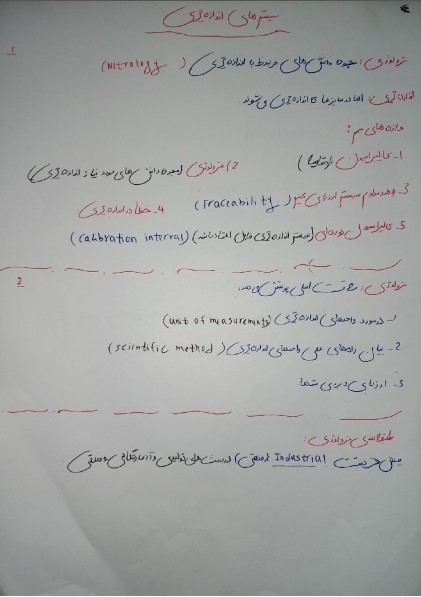 سیستم های اندازه گیری
1
مترولوژی: مجموعه دانش های مربوط به اندازه گیری (Metrology)
اندازه گیری: ابعاد سایزها اندازه گیری می شوند
واژه های مهم:
1- کالیبراسیون 2) مترولوژی (مجموعه دانش های مورد نیاز اندازه گیری)
3- سیستم ارزیابی (Traceability) 4- خطا در اندازه گیری
5- کالیبراسیون دوره ای (سیستم اندازه گیری قابل اعتماد باشد) (Calibration interval)
2
مترولوژی: 3 قسمت اصلی پوشش می دهد:
1- در مورد واحدهای اندازه گیری (unit of measurements)
2- بیان راه های علمی واحدهای اندازه گیری (scientific method)
3- ارزیابی
طبقه بندی مترولوژی:
Industrial (صنعتی) تست های تولیدی و آزمایشگاهی و صنعتی